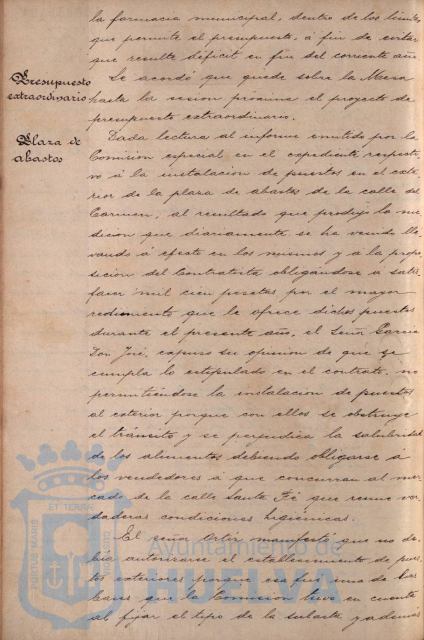 la farmacia municipal, dentro de los límites
que permite el presupuesto, a fin de evitar
que resulte déficit en fin del corriente año
Presupuesto extraordinario
Se acordó que quede sobre la Mesa
hasta la sesion próxima el proyecto de
presupuesto extraordinario.
Plaza de abastos
Dada lectura al informe emitido por la
Comision especial en el expediente respecti-
vo á la instalacion de puestos en el exte-
rior de la plaza de abastos de la calle del
Carmen, al resultado que produjo la me-
dicion que diariamente se ha venido lle-
vando á efecto en los mismos y á la propo-
sicion del Contratista obligándose á satis-
facer mil cien pesetas por el mayor
rendimiento que le ofrece dichos puestos
durante el presente año, el Señor Garcia
Don José, expuso su opinion de que se
cumpla lo estipulado en el contrato, no
permitiéndose la instalacion de puestos
al exterior porque con ellos se obstruye
el tránsito y se perjudica la salubridad
de los alimentos debiendo obligarse á
los vendedores á que concurran al mer-
cado de la calle Santa Fé que reune ver-
daderas condiciones higiénicas.
El señor Ortiz manifestó que no de-
bia autorizarse el establecimiento de pues-
tos exteriores porque esa fué una de las
bases que la Comision tuvo en cuenta
al fijar el tipo de la subasta y además
PORTUS MARIS ET TERRAE
Ayuntamiento de
HUELVA